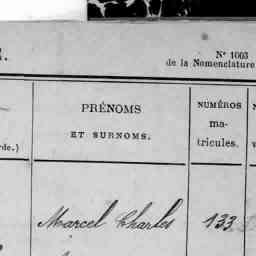 Nº 1003
de la Nomenclature
PRÉNOMS
ET SURNOMS.
NUMÉROS
ma-
tricules.
rde.)
Marcel Charles 133